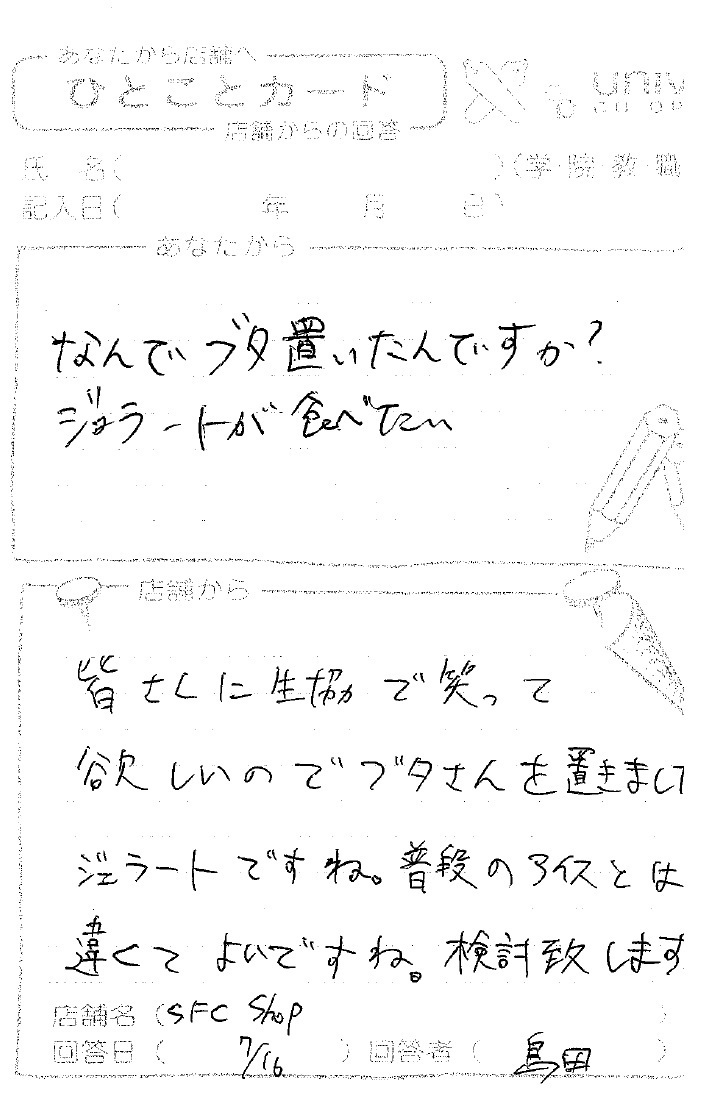 あなたから店舗へ
ひとことカード
店舗からの回答
UNIV
CO-OP
氏 名( )(学・院・教・職
記入日( 年 月 日)
あなたから
なんでブタ置いたんですか?
ジェラートが食べたい
店舗から
皆さんに生協で笑って
欲しいのでブタさんを置きまして
ジェラートですね。普段のアイスとは
違くてよいですね。検討致します
店舗名(SFC Shop )
回答日( 7/16 )回答者( 島田 )